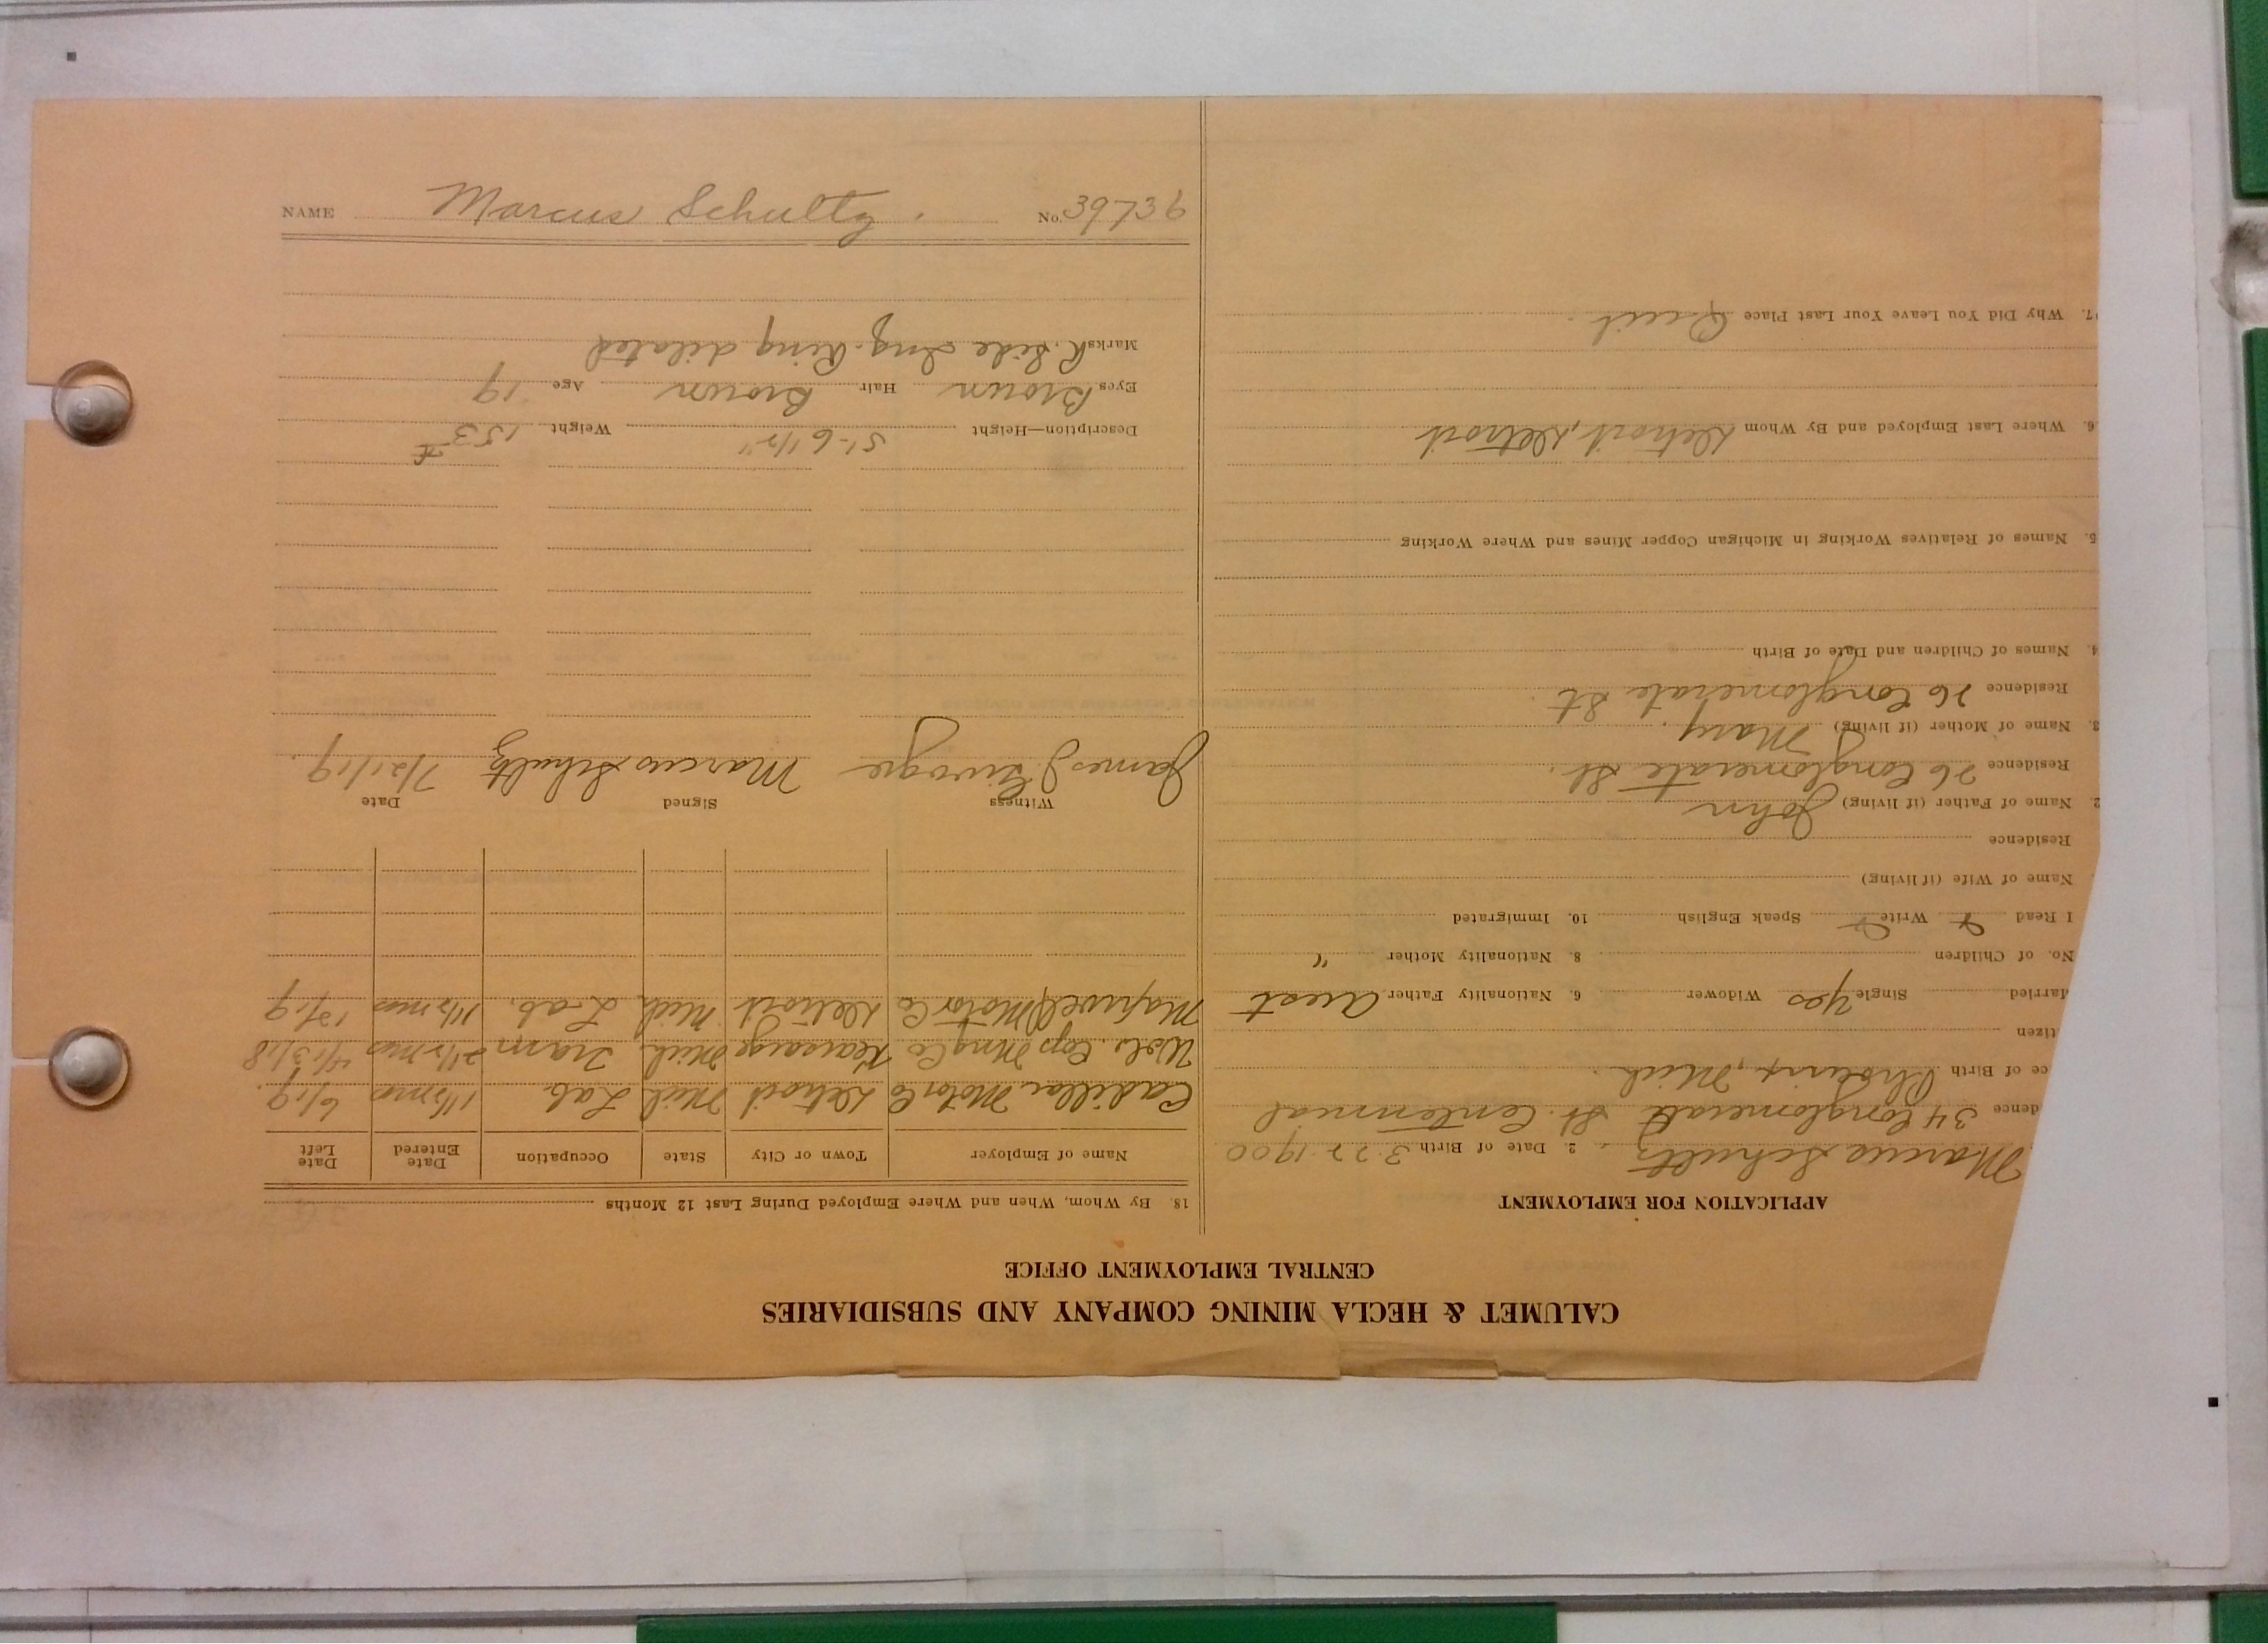 CALUMET & HECLA MINING COMPANY AND SUBSIDIARIES
CENTRAL EMPLOYMENT OFFICE
APPLICATION FOR EMPLOYMENT
Marcus Schultz. 2. Date of Birth 3-22-1900
dence 34 Conglomerate St. Centennial
ce of Birth Mich.
tizen
Married Single Yes Widower 6. Nationality Father Aust
No. of Children 8. Nationality Mother "
I Read Write Speak English 10. Immigrated
Name of Wife (if living)
Residence
2. Name of Father (if living) John
Residence 26 Conglomerate St.
3. Name of Mother (if living) Mary.
Residence 26 Conglomerate St.
4. Names of Children and Date of Birth
5. Names of Relatives Working in Michigan Copper Mines and Where Working
6. Where Last Employed and By Whom Detroit, Detroit
7. Why Did You Leave Your Last Place Quit.
18. By Whom, When and Where Employed During Last 12 Months
Name of Employer Town or City State Occupation Date Entered Date Left
Cadillac Motor Co Detroit Mich Lab. 1 1/2 mos 6/19.
Wol. Cop Mng Co Kearsarge Mich. Tram 2 1/2 mos 4/13/18
Maxwell Motor Co Detroit Mich. Lab. 1 1/2 mos 19
Witness Signed Date
James J. Marcus Schultz 7/21/19.
Description—Height 5'-6 1/2" Weight 153 #
Eyes Brown Hair Brown Age 19
Marks R. Side Ing. Ring dilated
NAME Marcus Schultz. No. 39736